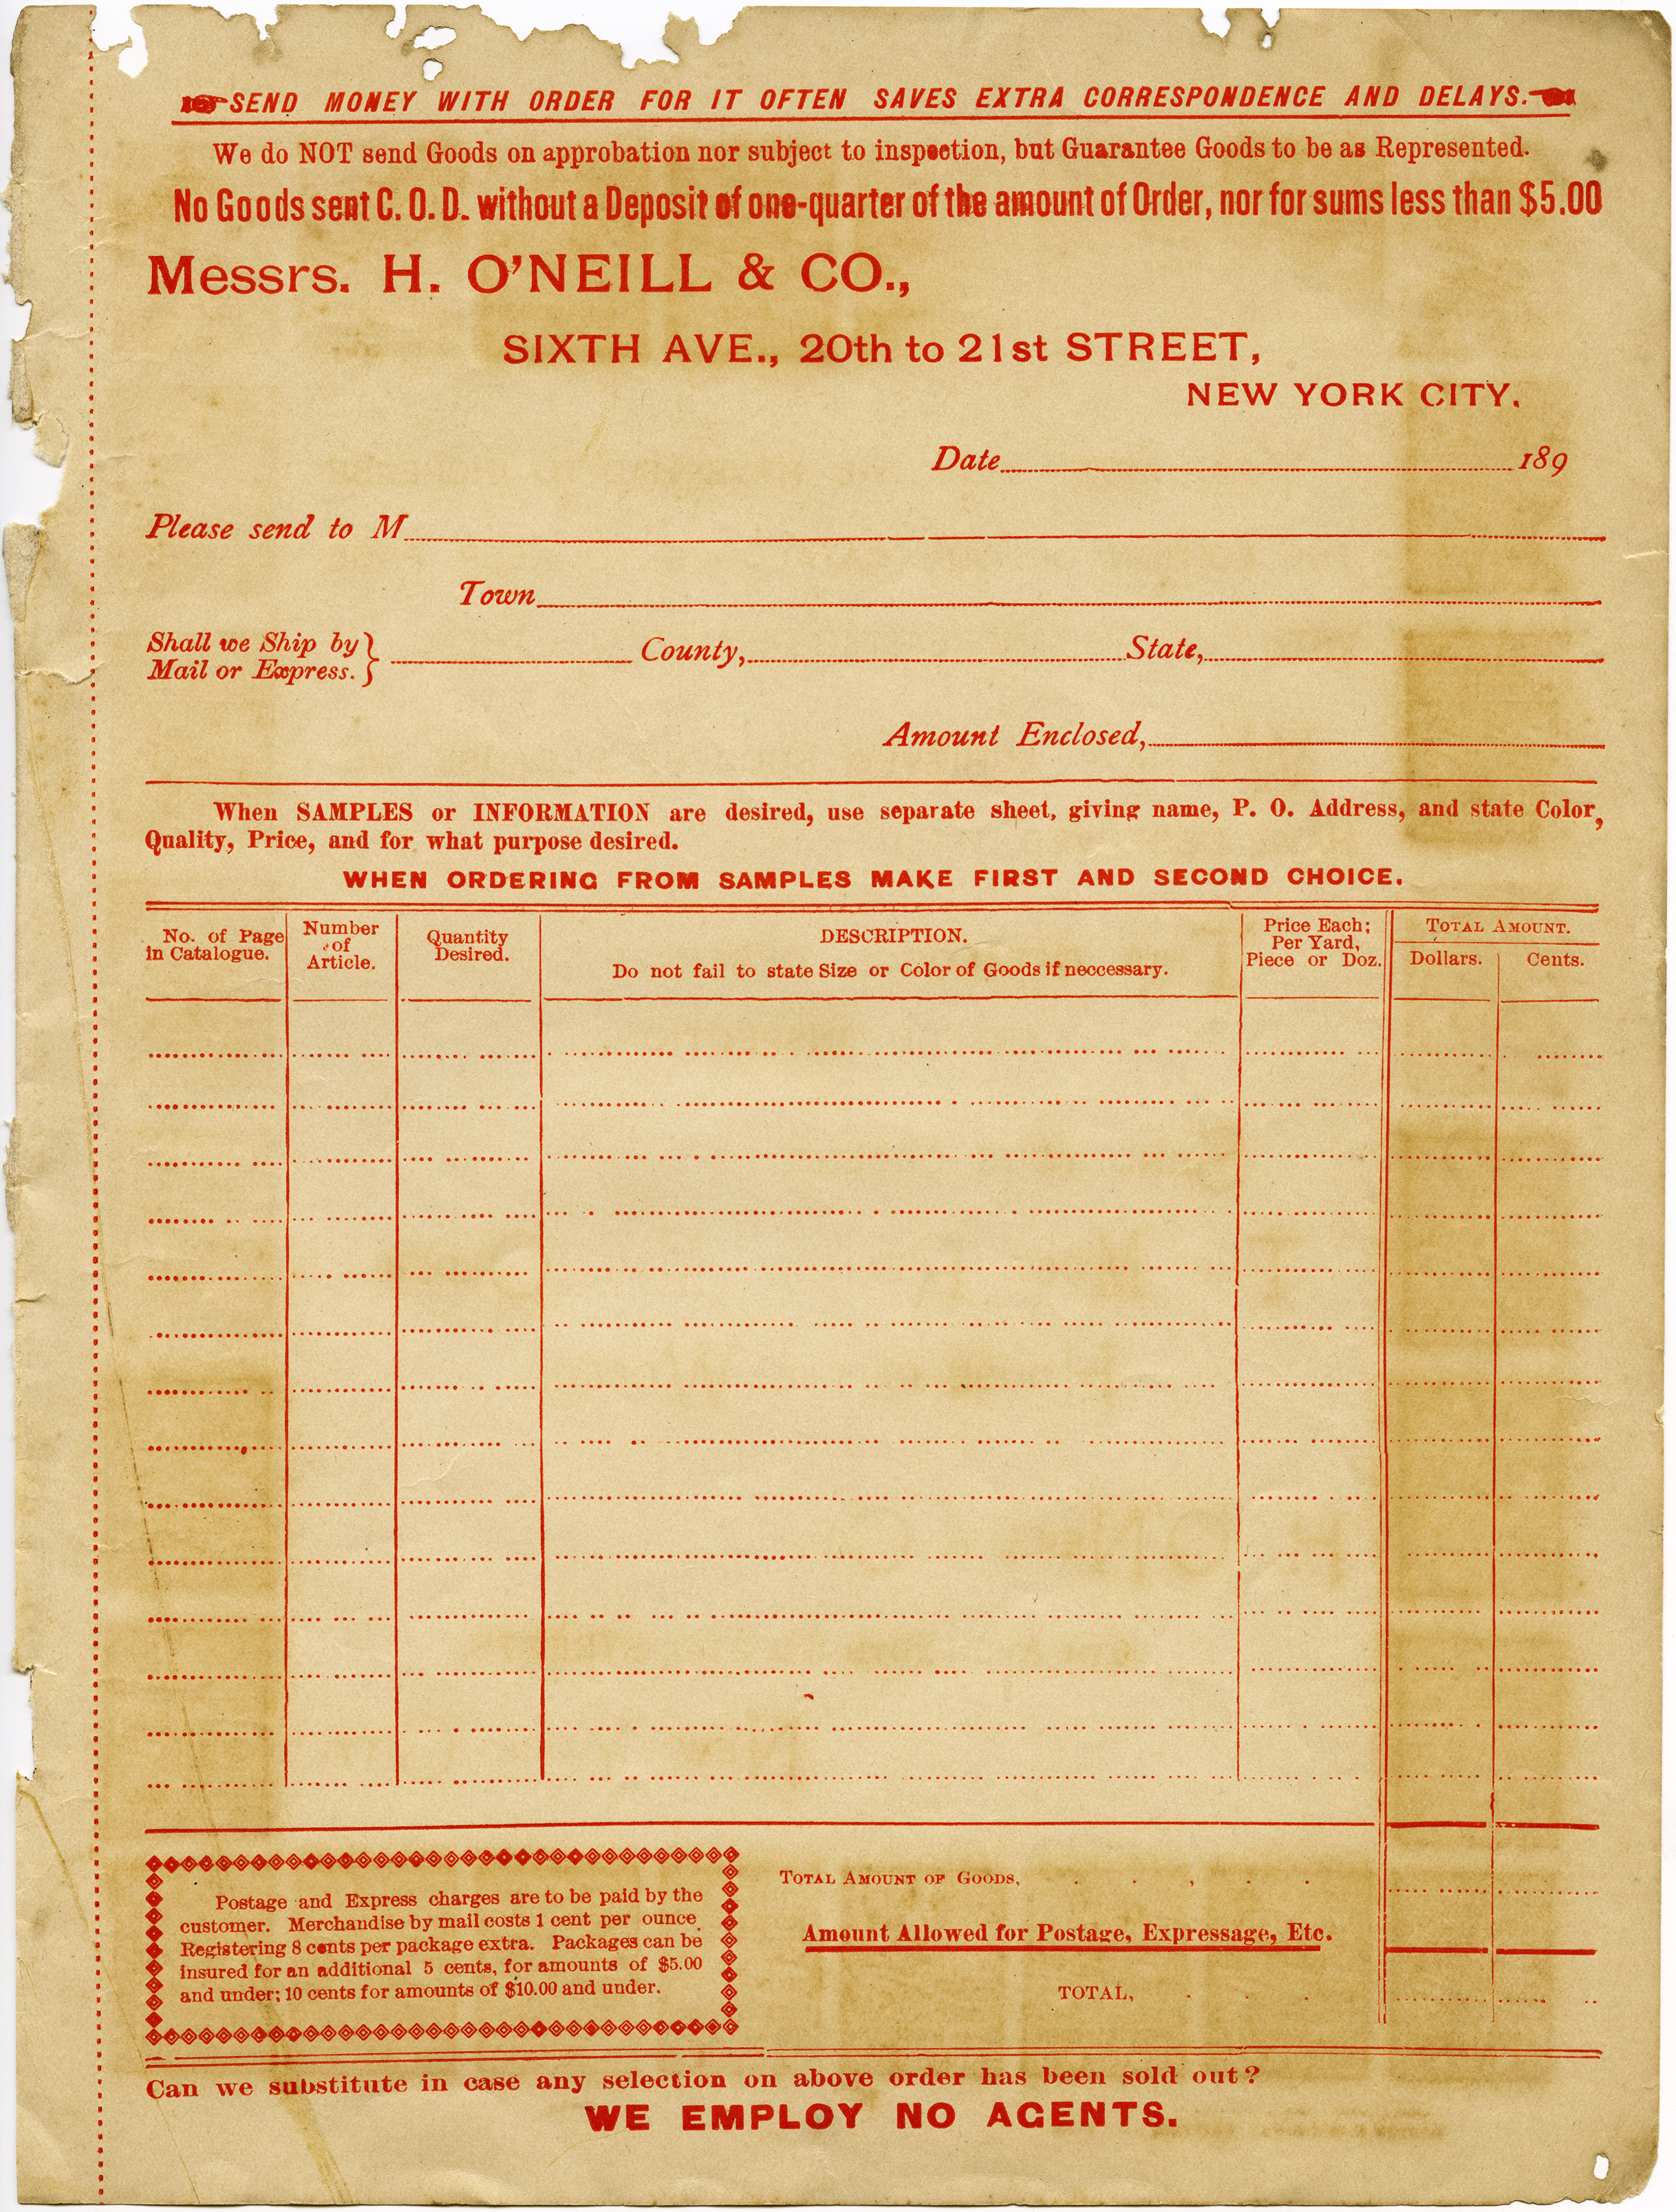 SEND MONEY WITH ORDER FOR IT OFTEN SAVES EXTRA CORRESPONDENCE AND DELAYS.
We do NOT send Goods on approbation nor subject to inspection, but Guarantee Goods to be as Represented.
No Goods sent C. O. D. without a Deposit of one-quarter of the amount of Order, nor for sums less than $5.00
Messrs. H. O'NEILL & CO.,
SIXTH AVE., 20th to 21st STREET,
NEW YORK CITY.
Date 189
Please send to M
Town
Shall we Ship by
Mail or Express. } County, State,
Amount Enclosed,
When SAMPLES or INFORMATION are desired, use separate sheet, giving name, P. O. Address, and state Color,
Quality, Price, and for what purpose desired.
WHEN ORDERING FROM SAMPLES MAKE FIRST AND SECOND CHOICE.
No. of Page
in Catalogue.
Number
of
Article.
Quantity
Desired.
DESCRIPTION.
Do not fail to state Size or Color of Goods if neccessary.
Price Each;
Per Yard,
Piece or Doz.
TOTAL AMOUNT.
Dollars. Cents.
Postage and Express charges are to be paid by the
customer. Merchandise by mail costs 1 cent per ounce.
Registering 8 cents per package extra. Packages can be
insured for an additional 5 cents, for amounts of $5.00
and under; 10 cents for amounts of $10.00 and under.
TOTAL AMOUNT OF GOODS,
Amount Allowed for Postage, Expressage, Etc.
TOTAL,
Can we substitute in case any selection on above order has been sold out?
WE EMPLOY NO AGENTS.